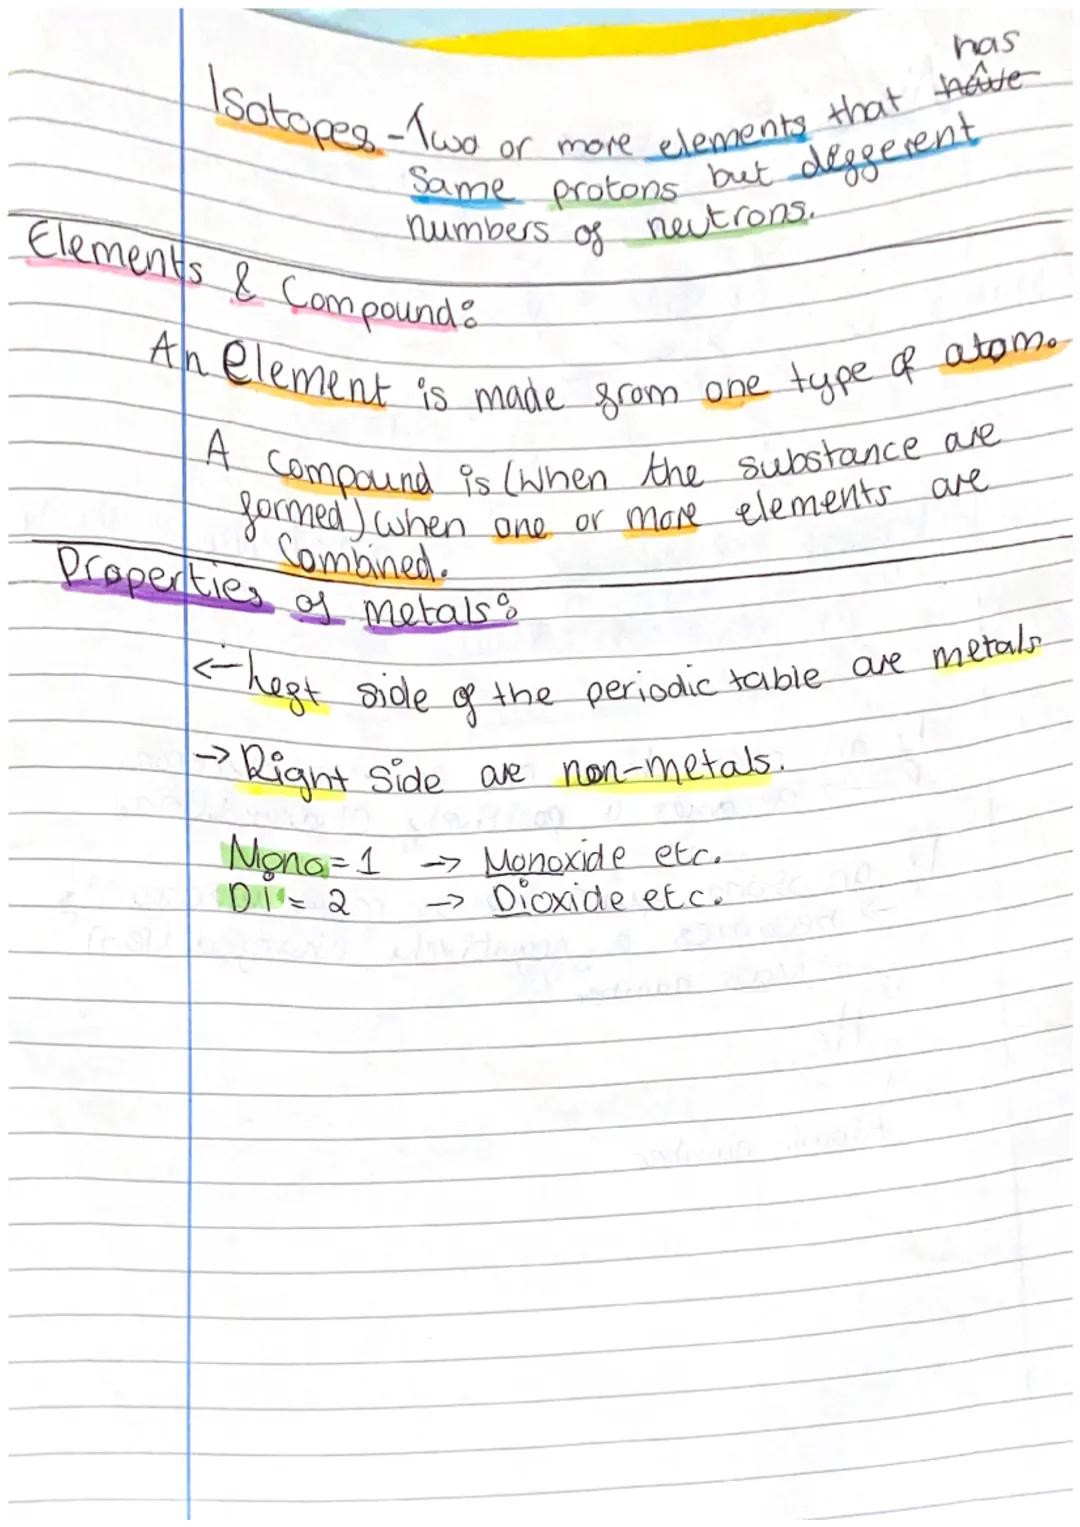 has
Isotopes - Two or more elements that have
Same protons but different
numbers of neutrons.
Elements & Compound:
An Element is made from one type of atom.
A compound is (when the substance are
formed) when one or more elements are
Combined.
Properties of metals:
← Left side of the periodic table are metals
→ Right Side are non-metals.
Mono = 1 → Monoxide etc.
Di = 2 → Dioxide etc.